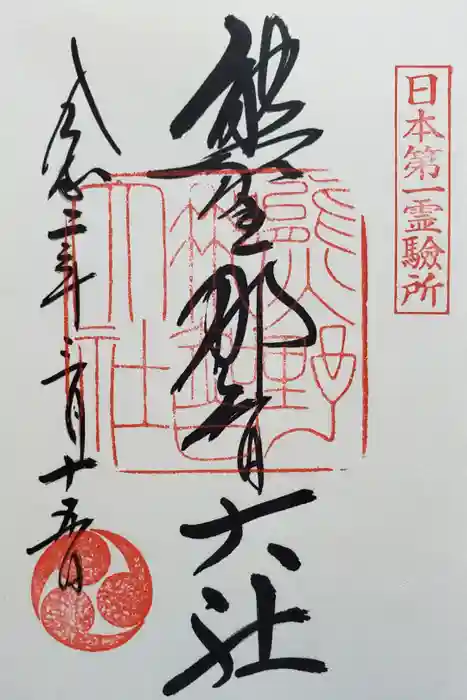 日本第一霊驗所
熊野那智大社
令和二年三月十五日
熊野
那智
大社